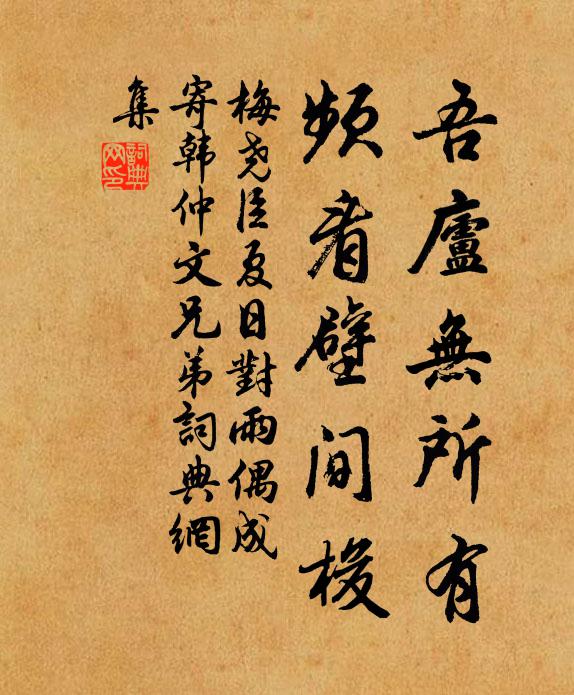 吾廬無所有
頻看壁間梭
梅堯臣夏日對雨偶成
寄韓仲文兄弟詞典網
集
詞典網印